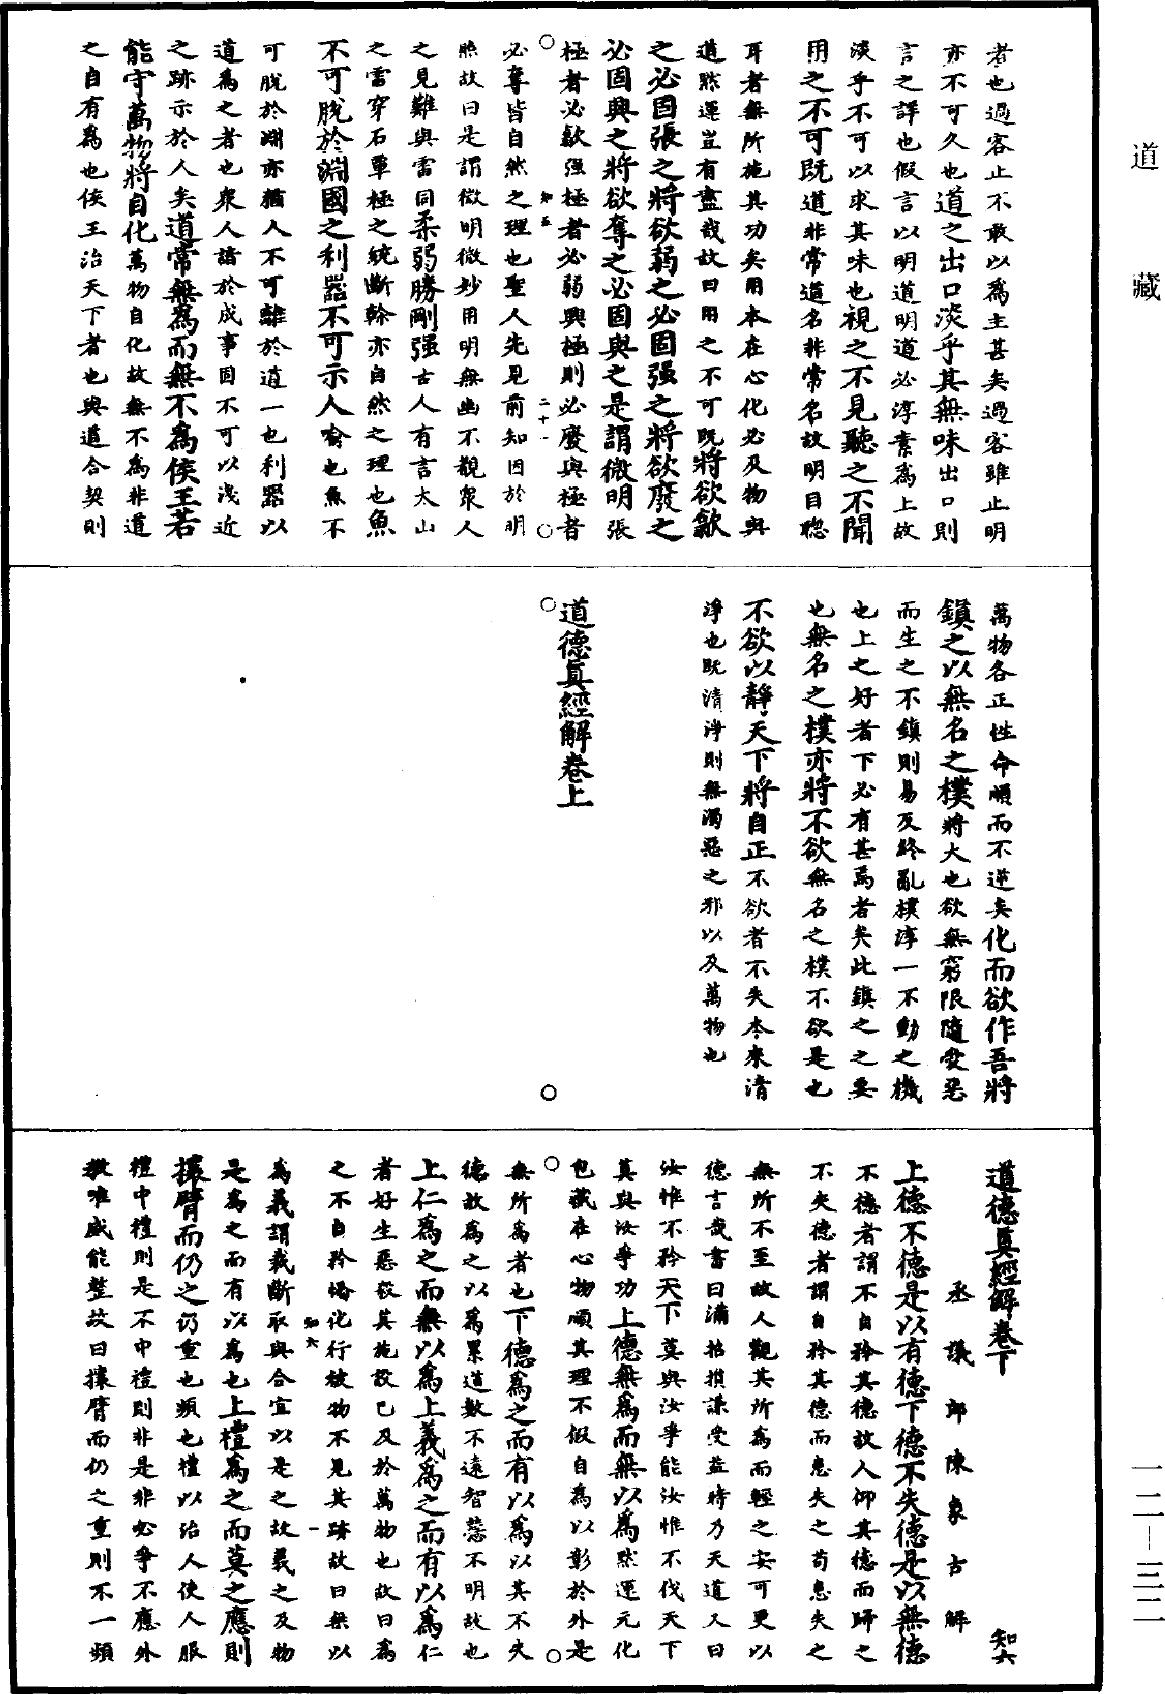 道藏
者也過客止不敢以為主甚矣過客雖止明
亦不可久也道之出口淡乎其無味出口則
言之詳也假言以明道明道必淳素為上故
淡乎不可以求其味也視之不見聽之不聞
用之不可既道非常道名非常名故明目聰
耳者無所施其功矣用本在心化必及物與
道黙運豈有盡哉故曰用之不可既將欲歙
之必固張之將欲弱之必固强之將欲廢之
必固興之將欲奪之必固與之是謂微明張
極者必歙强極者必弱興極則必廢與極者
知五 二十一
必奪皆自然之理也聖人先見前知因於明
照故曰是謂微明微妙用明無幽不覩衆人
之見難與雷同柔弱勝剛强古人有言太山
之霤穿石單極之統斷幹亦自然之理也魚
不可脫於淵國之利器不可示人喻也魚不
可脫於淵亦猶人不可離於道一也利器以
道為之者也衆人諳於成事固不可以淺近
之跡示於人矣道常無為而無不為侯王若
能守萬物將自化萬物自化故無不為非道
之自有為也侯王治天下者也與道合契則
萬物各正性命順而不逆矣化而欲作吾將
鎮之以無名之樸將大也欲無窮限隨愛惡
而生之不鎮則易及終亂樸淳一不動之機
也上之好者下必有甚焉者矣此鎮之之要
也無名之樸亦將不欲無名之樸不欲是也
不欲以靜天下將自正不欲者不失本來清
淨也既清淨則無濁惡之邪以及萬物也
道德真經解卷上
道德真經解卷下 知六
丞議郎陳象古解
上德不德是以有德下德不失德是以無德
不德者謂不自矜其德故人仰其德而歸之
不失德者謂自矜其德而患失之苟患失之
無所不至故人觀其所為而輕之安可更以
德言哉書曰滿招損謙受益時乃天道又曰
汝惟不矜天下莫與汝爭能汝惟不伐天下
莫與汝爭功上德無為而無以為黙運元化
包藏在心物順其理不假自為以彰於外是
無所為者也下德為之而有以為以其不失
德故為之以為累道數不遠智慧不明故也
上仁為之而無以為上義為之而有以為仁
者好生惡殺其施設已及於萬物也故曰為
之不自矜恪化行被物不見其跡故曰無以
知六 一
為義謂裁斷取與合宜以是之故義之及物
是為之而有以為也上禮為之而莫之應則
攘臂而仍之仍重也頻也禮以治人使人服
禮中禮則是不中禮則非是非必爭不應外
教唯威能整故曰攘臂而仍之重則不一頻
一二—三二